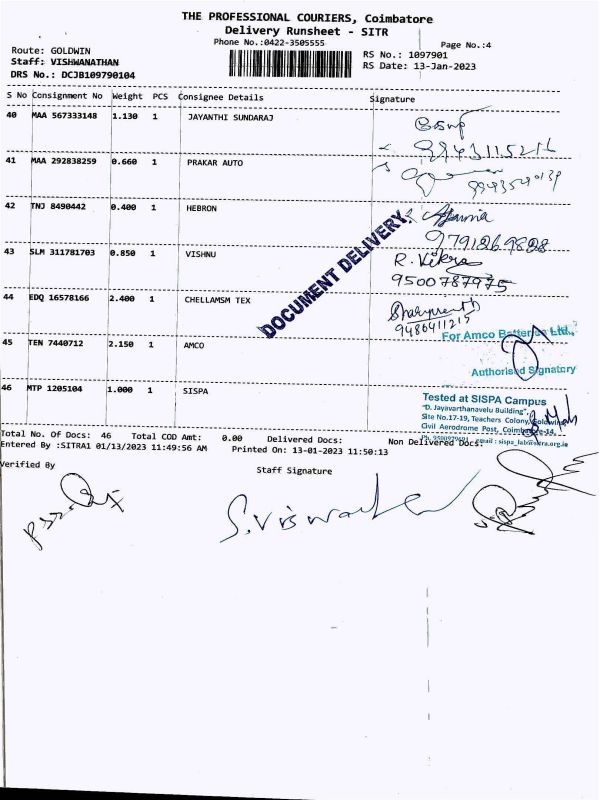 THE PROFESSIONAL COURIERS, Coimbatore
Delivery Runsheet - SITR
Phone No.:0422-3505555
Page No.:4
Route: GOLDWIN
RS No.: 1097901
Staff: VISHWANATHAN
RS Date: 13-Jan-2023
DRS No.: DCJB109790104
S No Consignment No Weight PCS Consignee Details Signature
40 MAA 567333148 1.130 1 JAYANTHI SUNDARAJ
41 MAA 292838259 0.660 1 PRAKAR AUTO
42 TNJ 8490442 0.400 1 HEBRON
9791269828
43 SLM 311781703 0.850 1 VISHNU R. Vikra
9500787975
DOCUMENT DELIVERY
44 EDQ 16578166 2.400 1 CHELLAMSM TEX
9486411215
For Amco Batteries Ltd.,
45 TEN 7440712 2.150 1 AMCO
Authorised Signatory
46 MTP 1205104 1.000 1 SISPA
Tested at SISPA Campus
"D. Jayavarthanavelu Building",
Site No.17-19, Teachers Colony, Goldwins
Civil Aerodrome Post, Coimbatore-14,
Total No. Of Docs: 46 Total COD Amt: 0.00 Delivered Docs: Non Delivered Docs:
Entered By :SITRA1 01/13/2023 11:49:56 AM Printed On: 13-01-2023 11:50:13
Verified By
Staff Signature